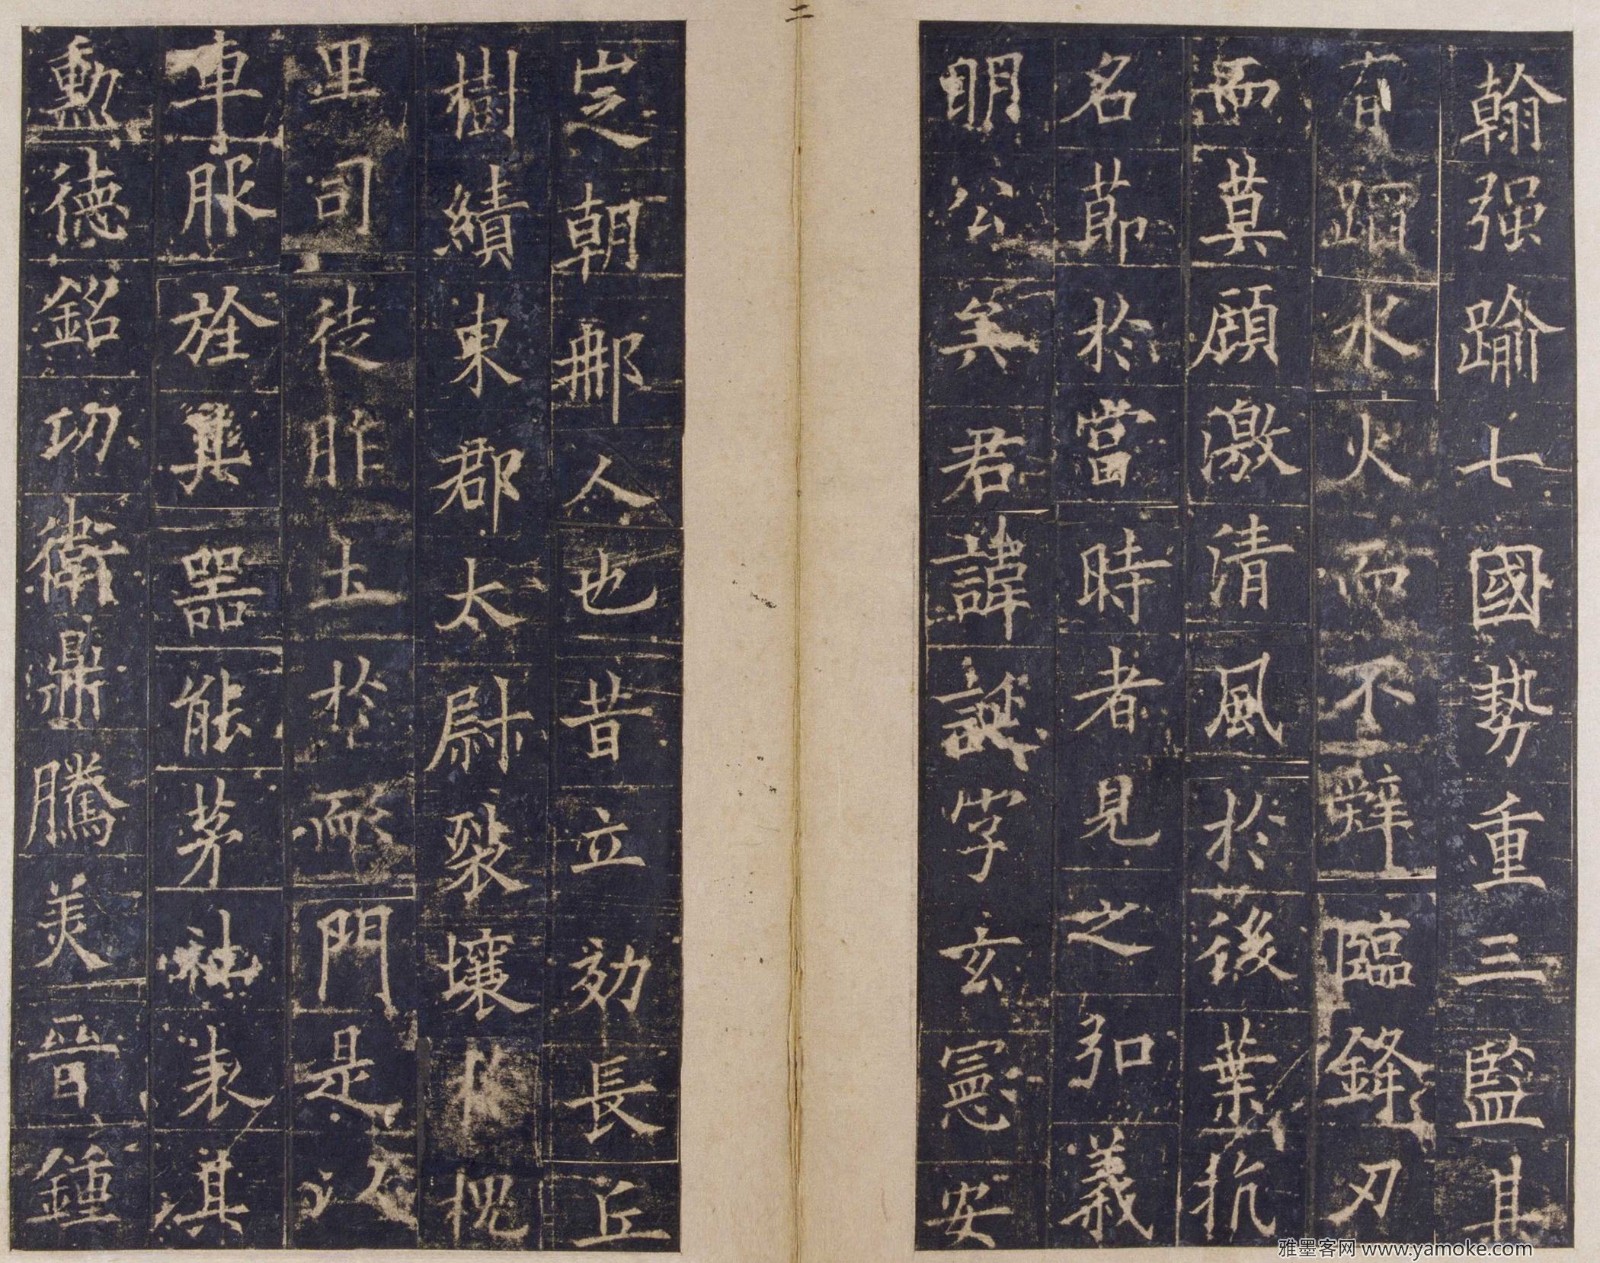 二
翰强踰七國勢重三監其
有蹈水火而不辭臨鋒刃
而莫顧激清風於後葉抗
名節於當時者見之弘義
明公矣君諱誕字玄憲安
定朝那人也昔立効長丘
樹績東郡太尉裂壤於槐
里司徒胙土於耏門是以
車服旌其器能茅社表其
勳德銘功衛鼎騰美晉鍾
雅墨客网 www.yamoke.com